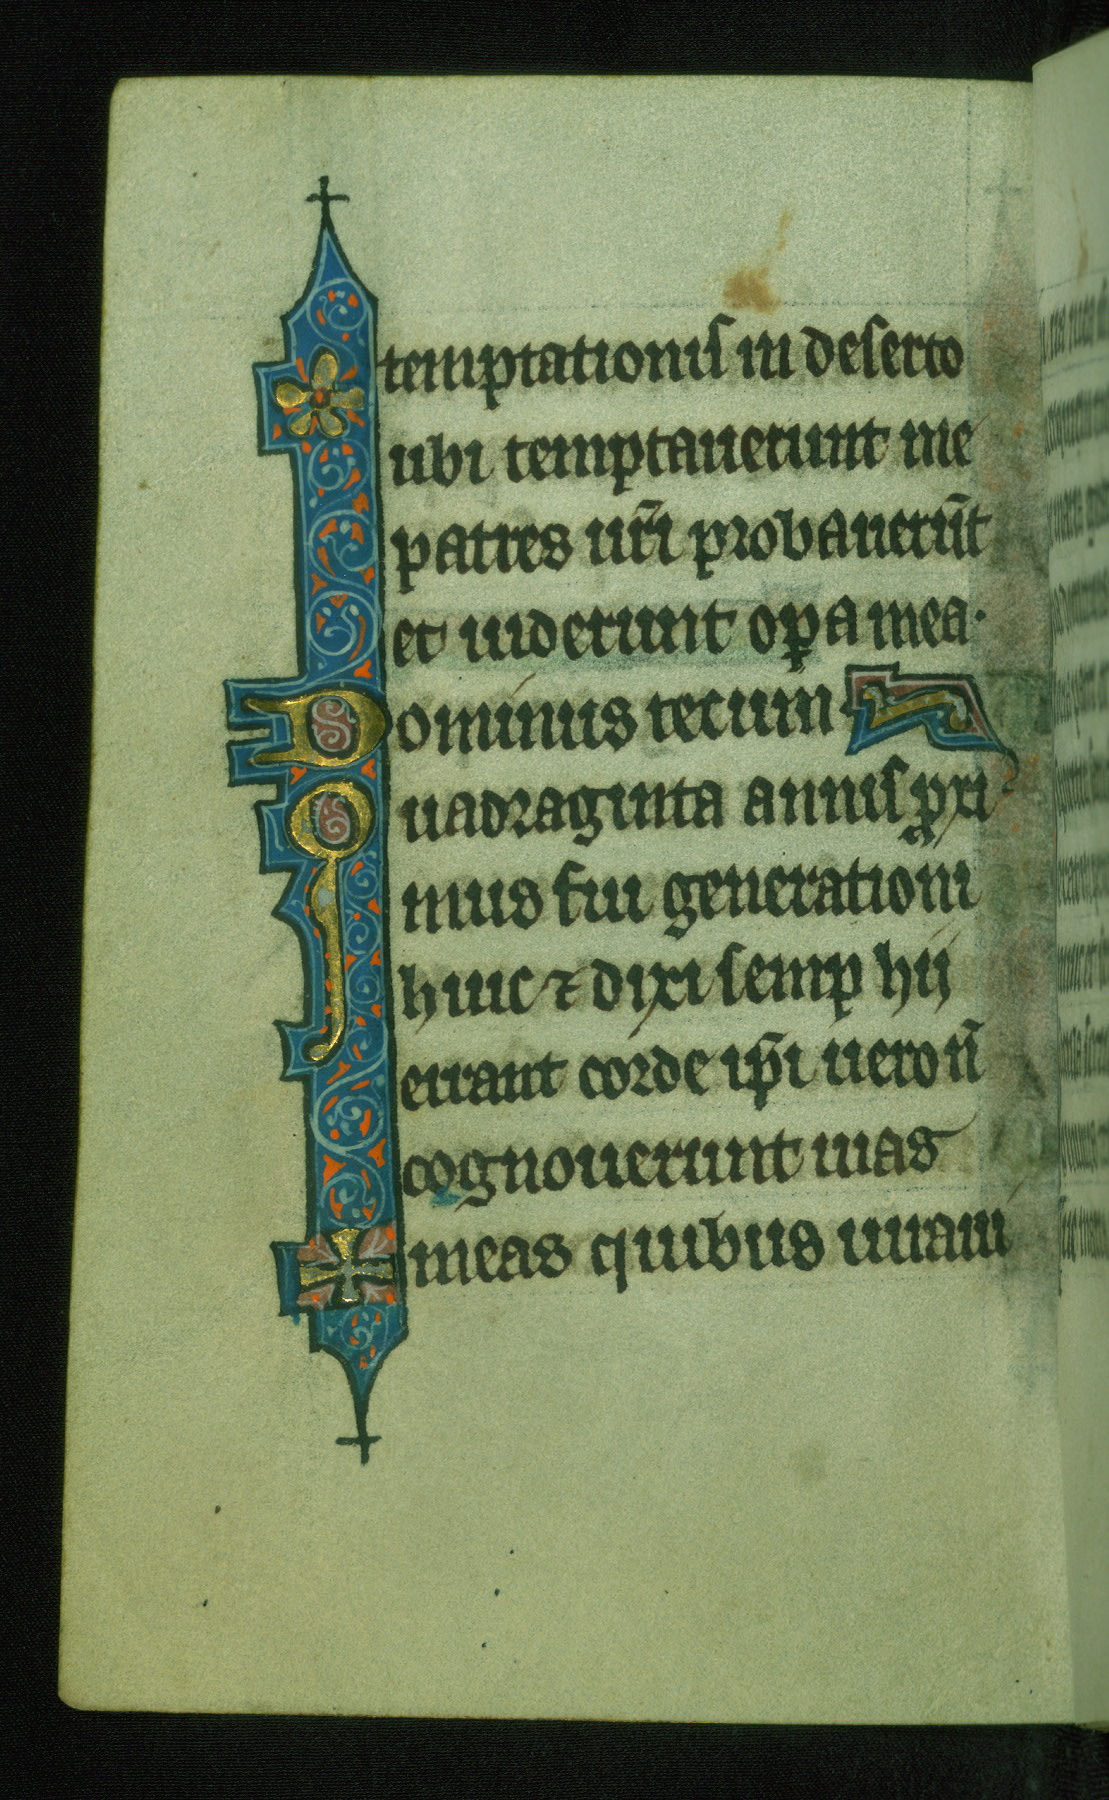 temptationis in deserto
ubi temptauerunt me
patres ur̃i probauerūt
et uiderunt oꝑa mea·
Dominus tecum
Quadraginta annis ꝓxi
mus fui generationi
huic ⁊ dixi semꝑ hij
errant corde ip̄i uero ñ
cognouerunt uias
meas quibus iuraui